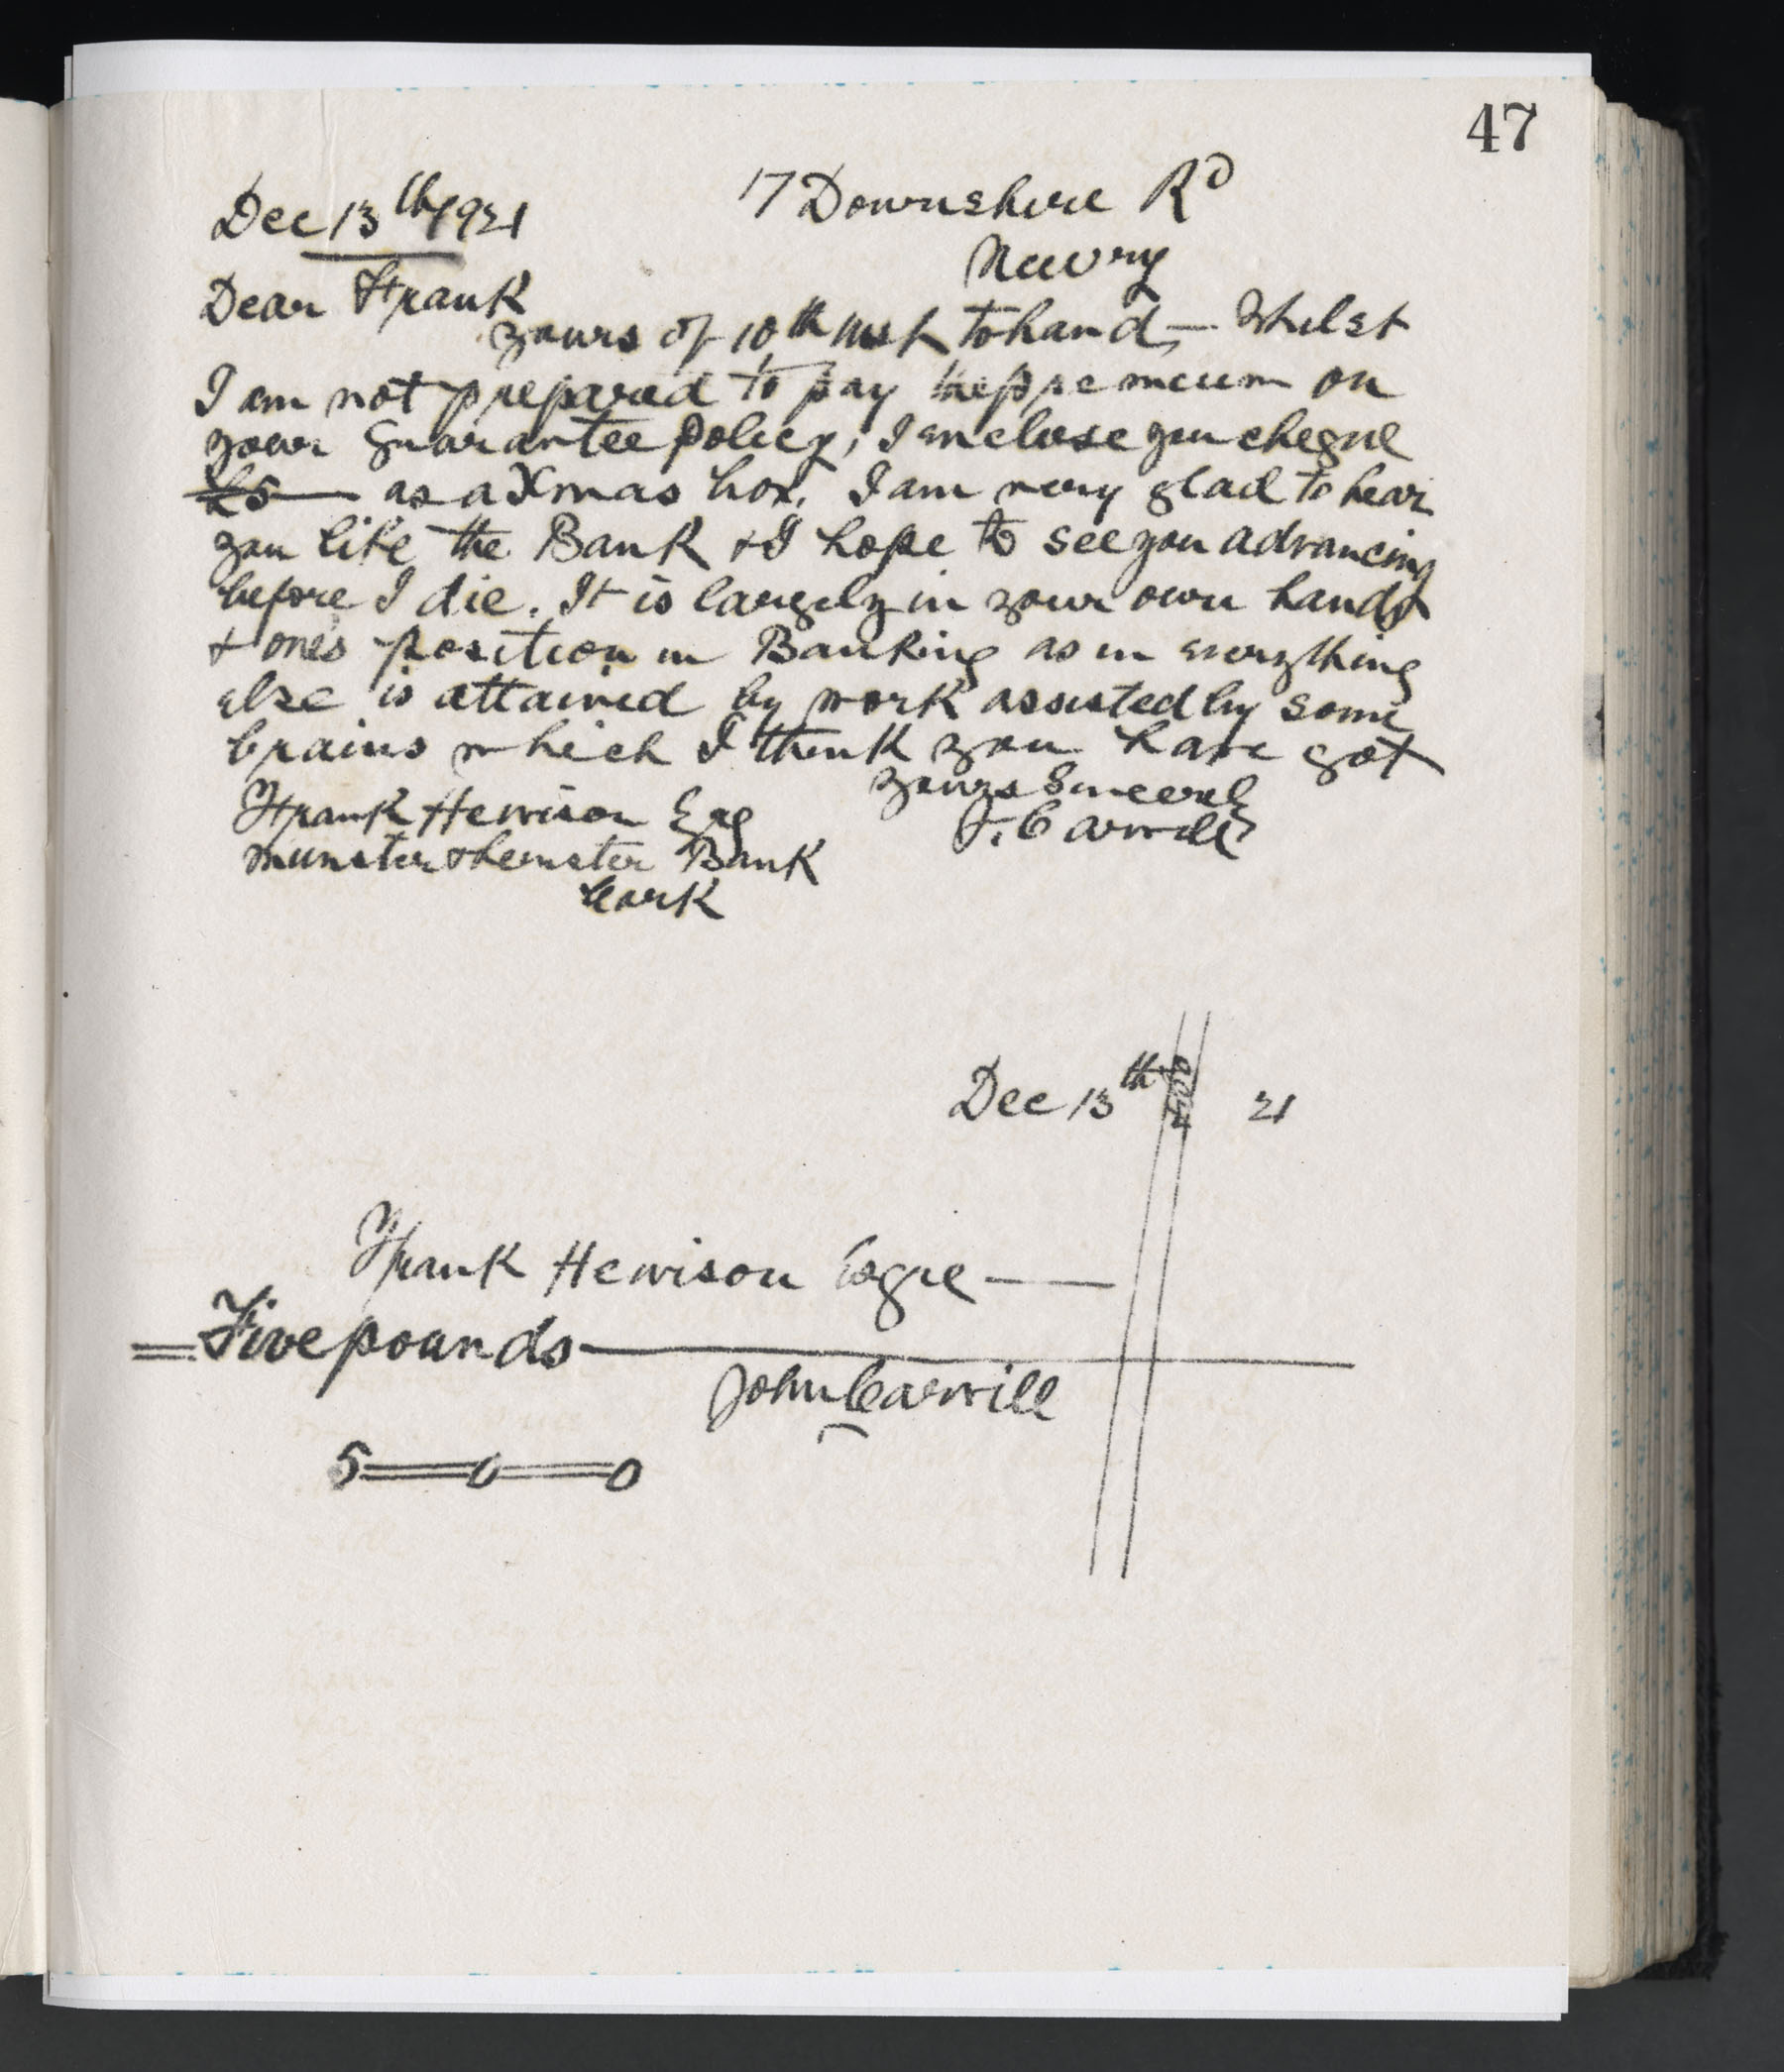 47
Dec 13th 1921
17 Downshire Rd
Newry
Dear Frank
yours of 10th inst to hand, — Whilst
I am not prepared to pay the premium on
your guarantee policy, I enclose you cheque
£5 — as a Xmas box. I am very glad to hear
you like the Bank & I hope to see you advancing
before I die. It is largely in your own hands
& ones position in Banking as in everything
else is attained by work assisted by some
brains which I think you have got
yours Sincerely
J. Carvill
Frank Hewison Esq
Munster & Leinster Bank
Cork
Dec 13th 21
Frank Hewison Esqre —
= Five pounds —
John Carvill
5 = 0 = 0